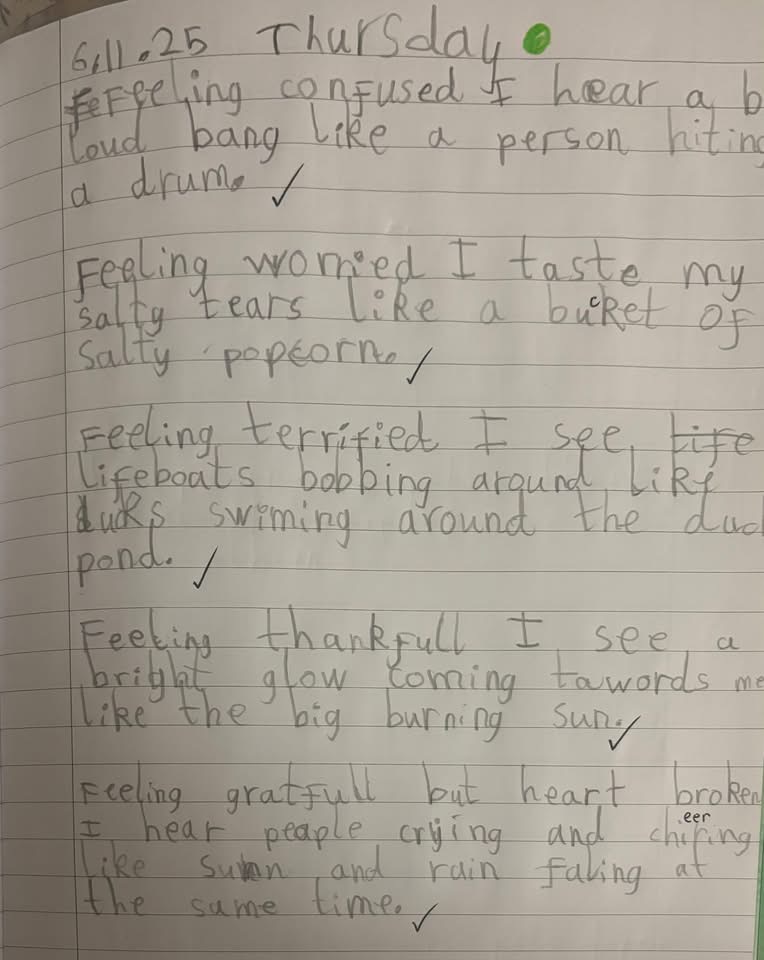 6.11.25 Thursday
Feeling confused I hear a b
loud bang like a person hiting
a drum.
Feeling worried I taste my
salty tears like a bucket of
salty popcorn.
Feeling terrified I see life
lifeboats bobbing around like
duks swiming around the duc
pond.
Feeling thankfull I see a
bright glow coming tawords me
like the big burning sun.
Feeling gratfull but heart broken
eer
I hear peaple crying and chifing
like sun and rain faling at
the same time.